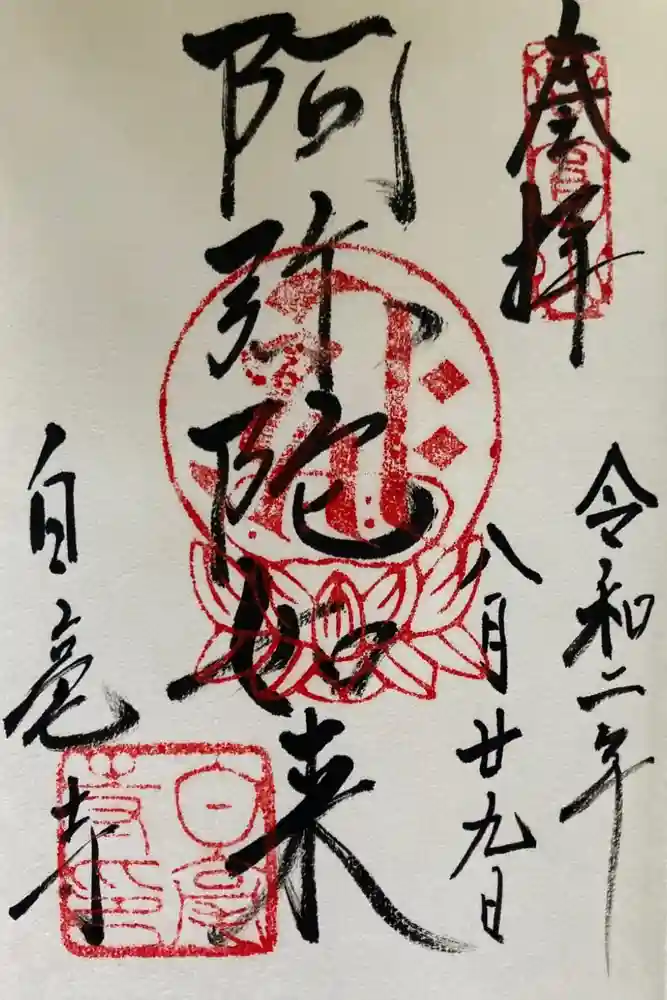 奉拝
令和二年
八月廿九日
阿弥陀如来
白亳寺